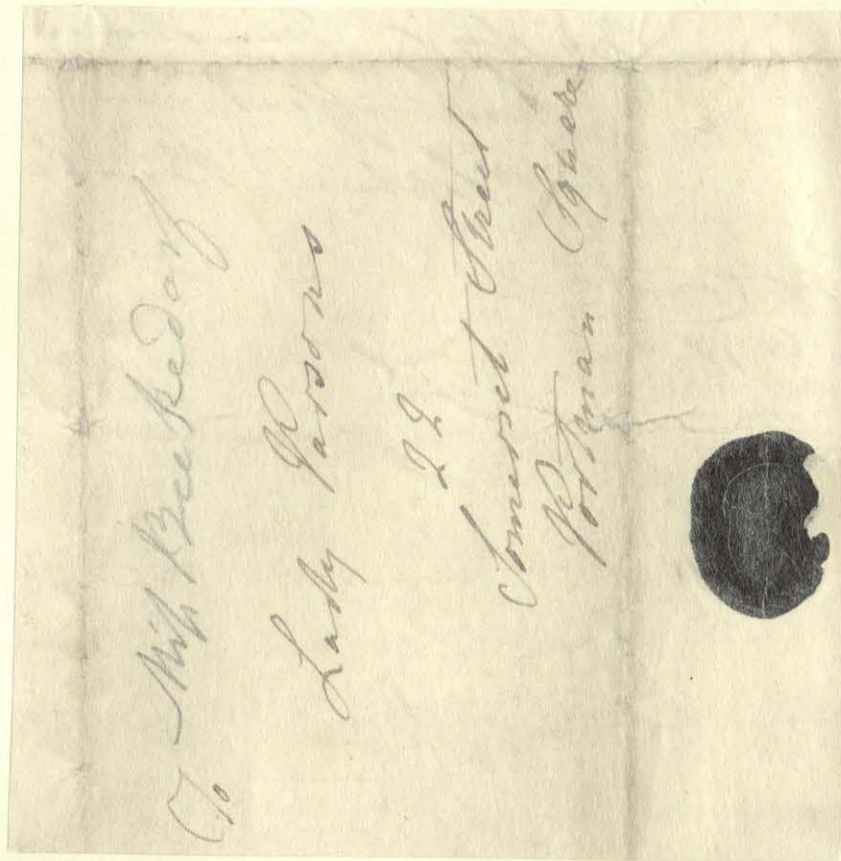 C/o Miss Beckedorf
Lady Parsons
22
Somerset Street
Portman Square